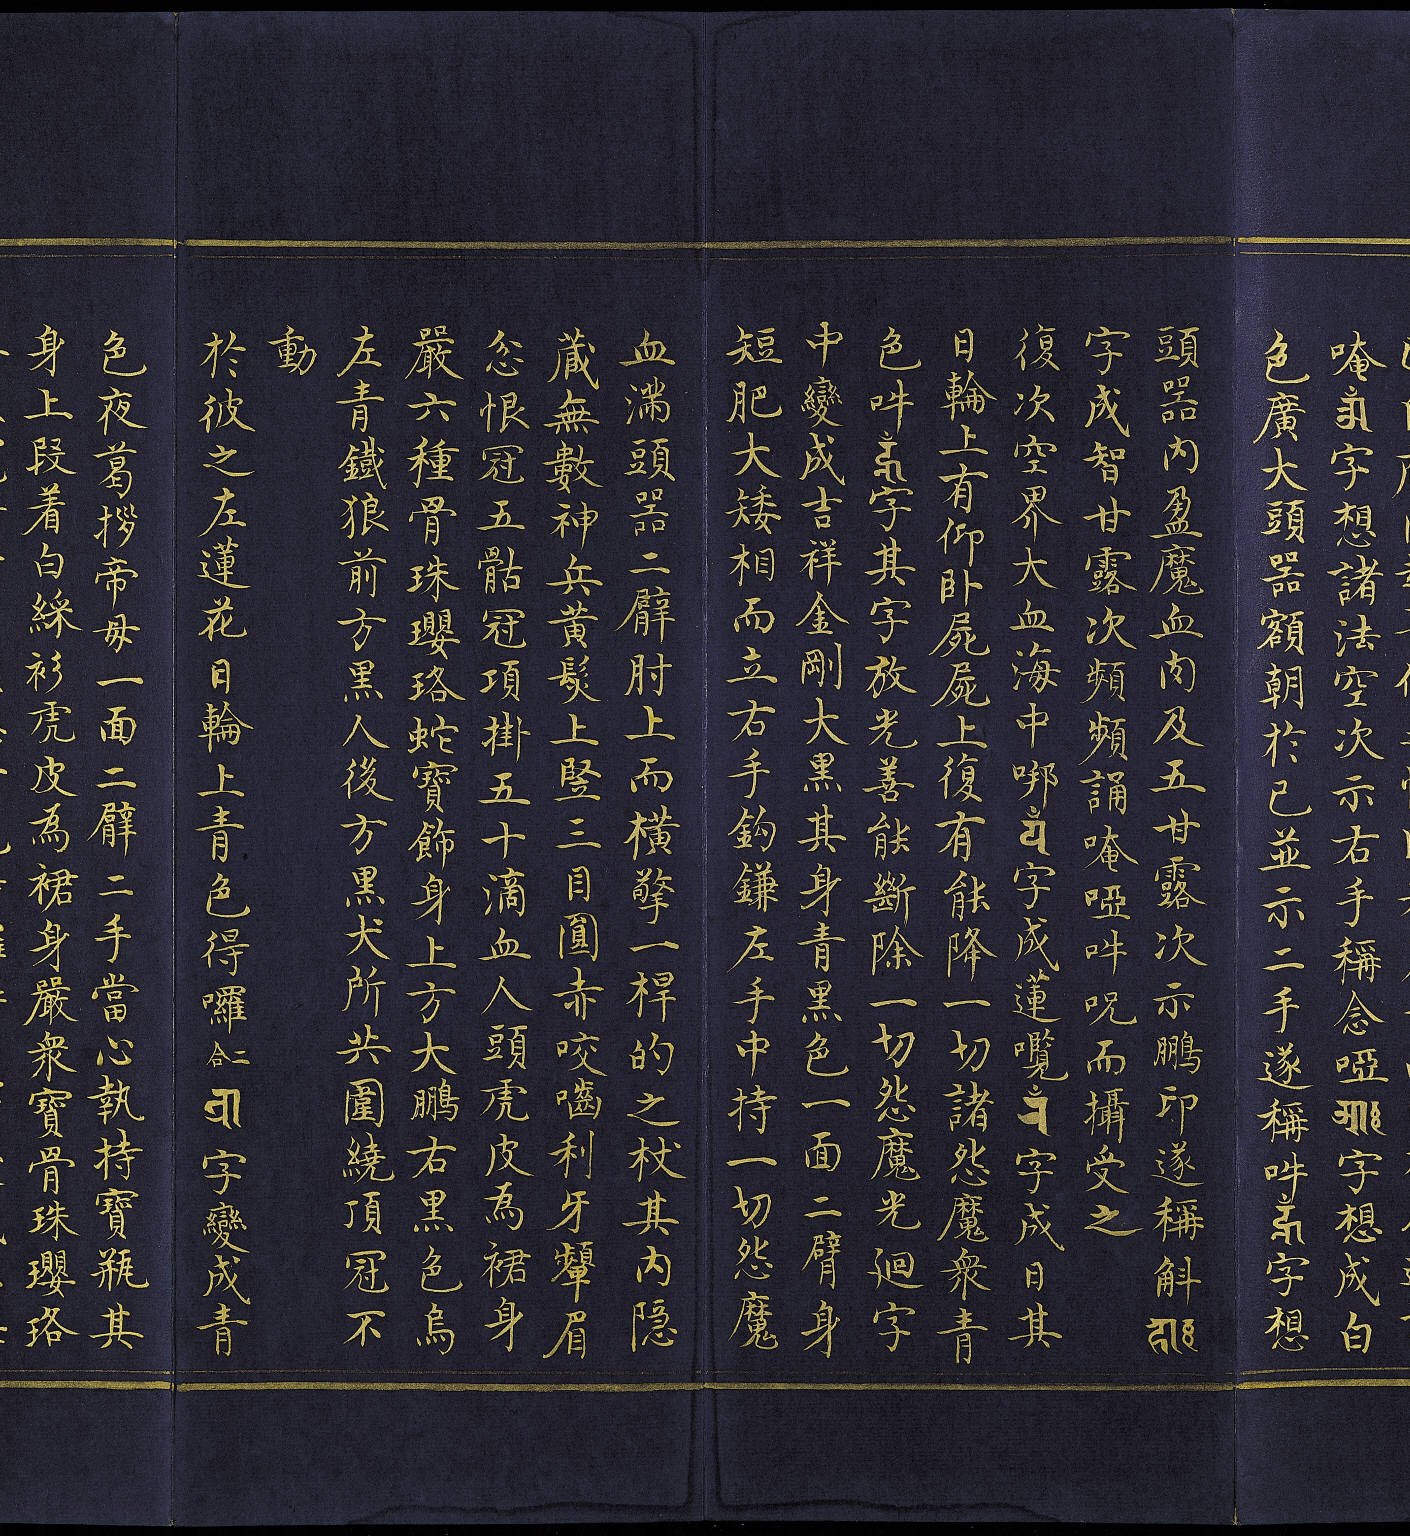 唵ॐ字想諸法空次示右手稱念啞आः字想成白
色廣大頭器額朝於已並示二手遂稱吽हूँ字想
頭器內盈魔血肉及五甘露次示鵬印遂稱斛होः
字成智甘露次頻頻誦唵啞吽呪而攝受之
復次空界大血海中㖿यँ字成蓮囕रँ字成日其
日輪上有仰臥屍屍上復有能降一切諸怨魔衆青
色吽हूँ字其字放光善能斷除一切怨魔光迴字
中變成吉祥金剛大黑其身青黑色一面二臂身
短肥大矮相而立右手鈎鎌左手中持一切怨魔
血滿頭器二臂肘上而橫擎一桿的之杖其內隱
藏無數神兵黃髮上竪三目圓赤咬嚙利牙顰眉
忿恨冠五骷冠項掛五十滴血人頭虎皮為裙身
嚴六種骨珠瓔珞蛇寶飾身上方大鵬右黑色烏
左青鐵狼前方黑人後方黑犬所共圍繞頂冠不
動
於彼之左蓮花日輪上青色得囉二合字變成青
色夜葛拶帝母一面二臂二手當心執持寶瓶其
身上段着白綵衫虎皮為裙身嚴衆寶骨珠瓔珞